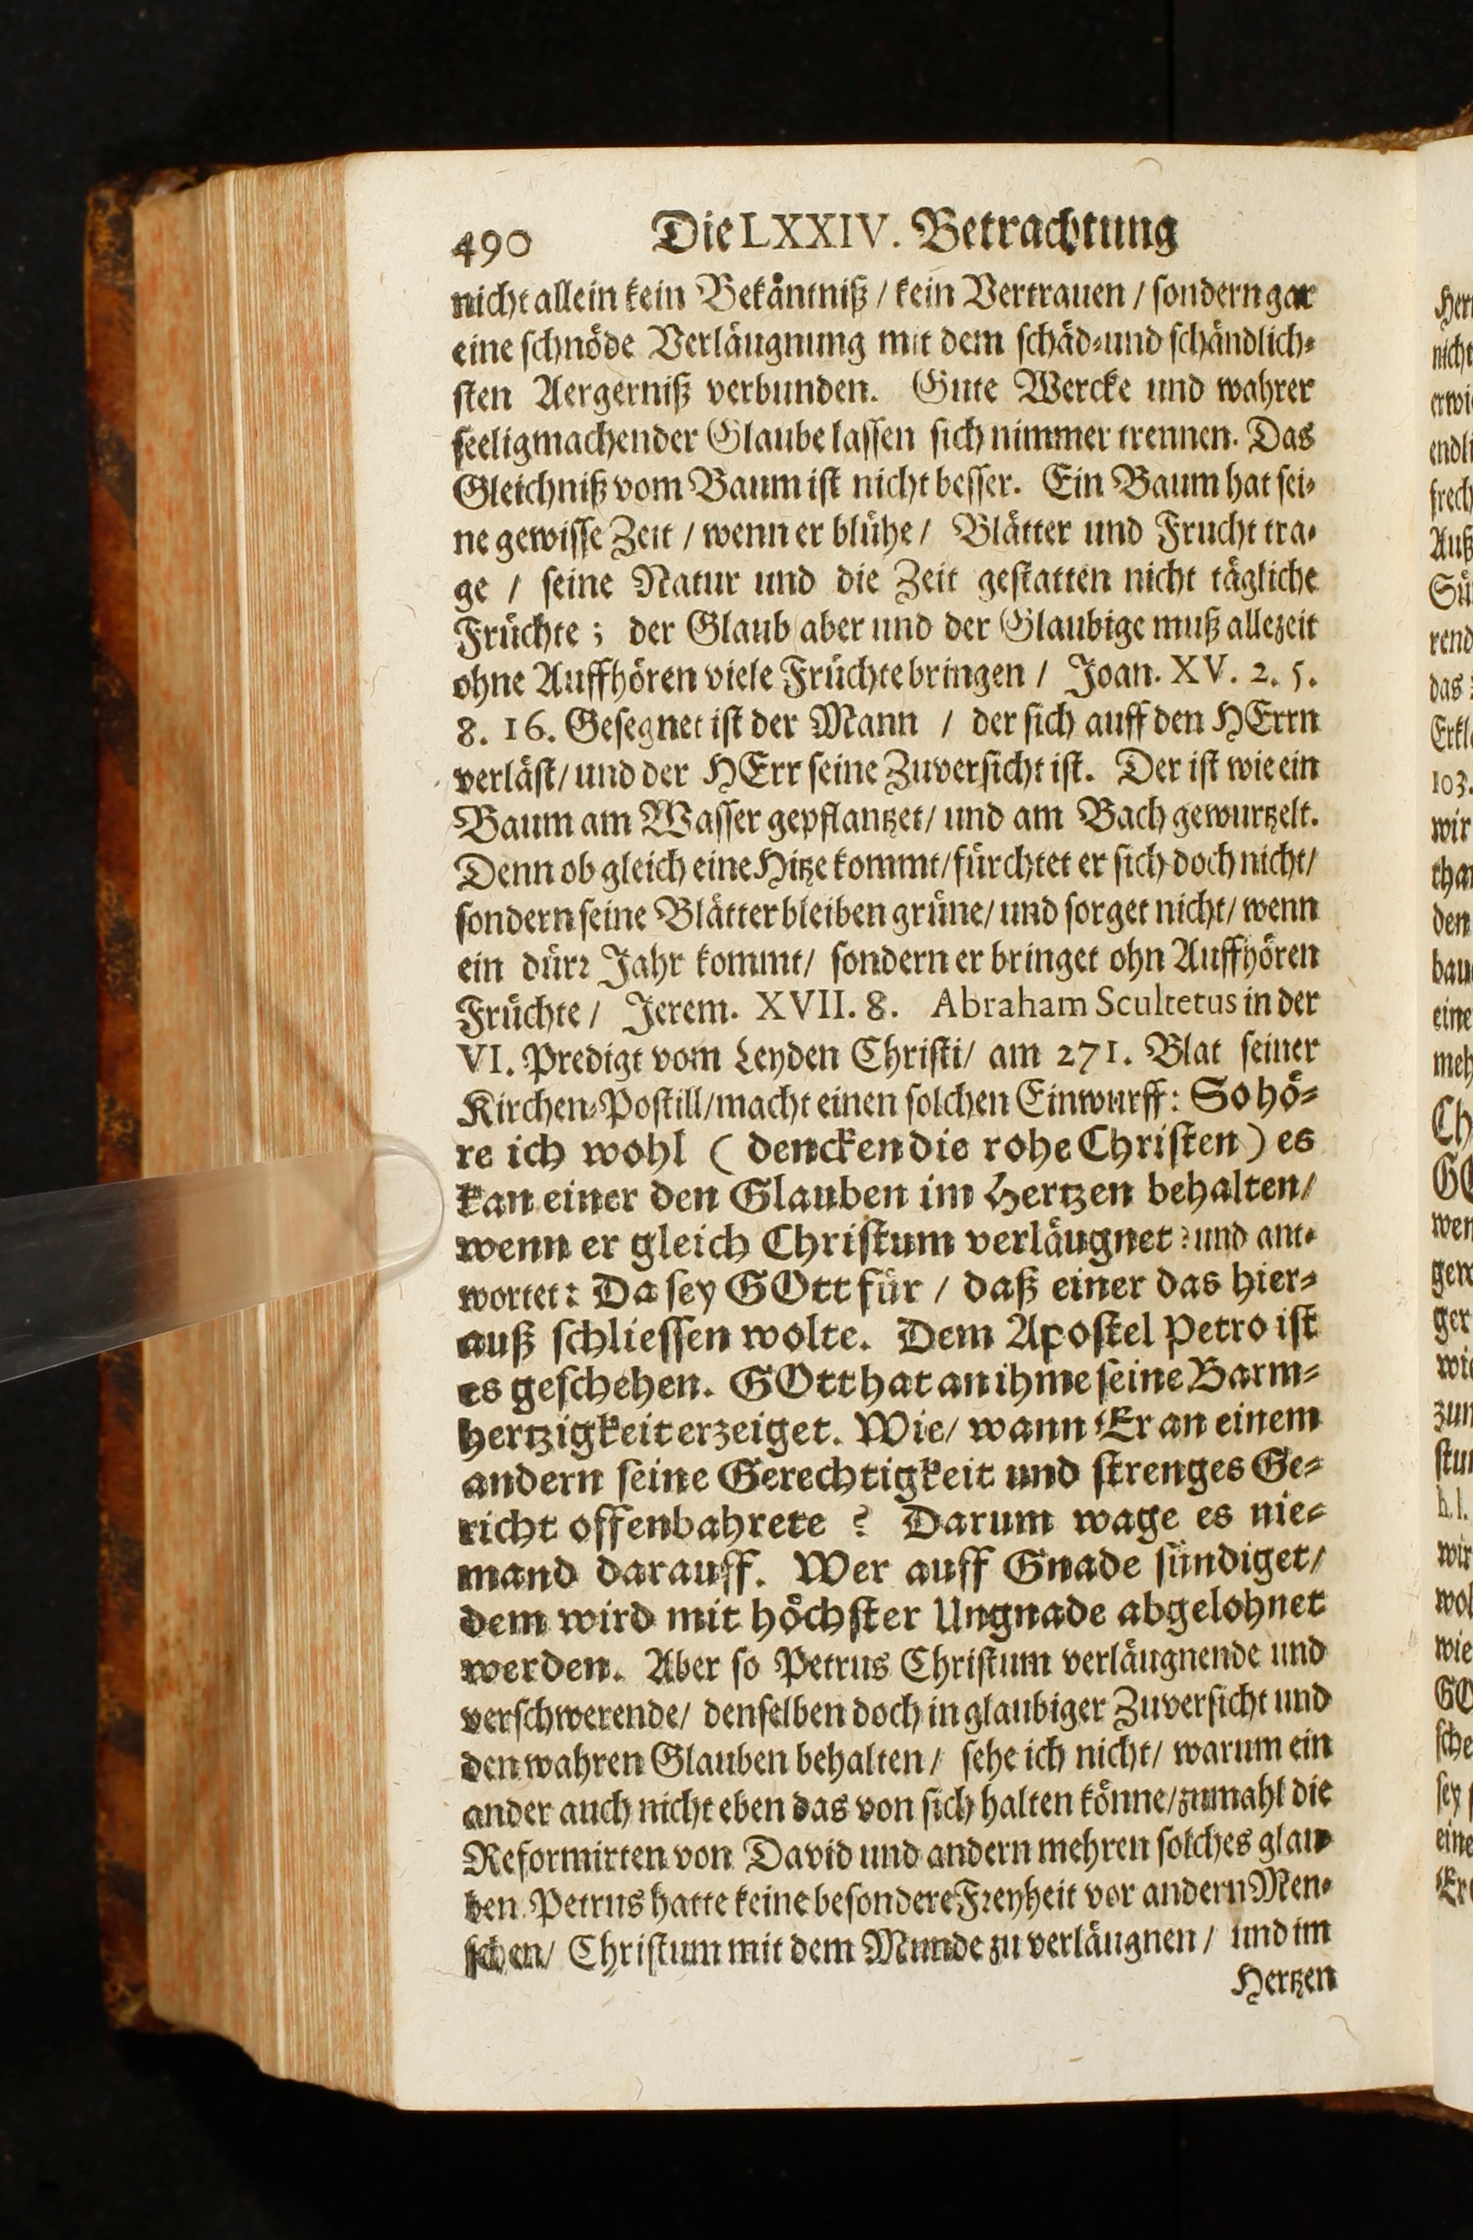 490 Die LXXIV. Betrachtung
nicht allein kein Bekäntniß / kein Vertrauen / sondern gar
eine schnöde Verläugnung mit dem schäd- und schändlich-
sten Aergerniß verbunden. Gute Wercke und wahrer
seeligmachender Glaube lassen sich nimmer trennen. Das
Gleichniß vom Baum ist nicht besser. Ein Baum hat sei-
ne gewisse Zeit / wenn er blühe / Blätter und Frucht tra-
ge / seine Natur und die Zeit gestatten nicht tägliche
Früchte ; der Glaub aber und der Glaubige muß allezeit
ohne Auffhören viele Früchte bringen / Joan. XV. 2. 5.
8. 16. Gesegnet ist der Mann / der sich auff den HErrn
verläst / und der HErr seine Zuversicht ist. Der ist wie ein
Baum am Wasser gepflantzet / und am Bach gewurtzelt.
Denn ob gleich eine Hitze kommt / fürchtet er sich doch nicht /
sondern seine Blätter bleiben grüne / und sorget nicht / wenn
ein dürr Jahr kommt / sondern er bringet ohn Auffhören
Früchte / Jerem. XVII. 8. Abraham Scultetus in der
VI. Predigt vom Leyden Christi / am 271. Blat seiner
Kirchen-Postill / macht einen solchen Einwurff : So hö-
re ich wohl ( dencken die rohe Christen ) es
kan einer den Glauben im Hertzen behalten /
wenn er gleich Christum verläugnet ? und ant-
wortet : Da sey GOtt für / daß einer das hier-
auß schliessen wolte. Dem Apostel Petro ist
es geschehen. GOtt hat an ihme seine Barm-
hertzigkeit erzeiget. Wie / wann Er an einem
andern seine Gerechtigkeit und strenges Ge-
richt offenbahrete ? Darum wage es nie-
mand darauff. Wer auff Gnade sündiget /
dem wird mit höchster Ungnade abgelohnet
werden. Aber so Petrus Christum verläugnende und
verschwerende / denselben doch in glaubiger Zuversicht und
den wahren Glauben behalten / sehe ich nicht / warum ein
ander auch nicht eben das von sich halten könne / zumahl die
Reformirten von David und andern mehren solches glau-
ben. Petrus hatte keine besondere Freyheit vor andern Men-
schen / Christum mit dem Munde zu verläugnen / und im
Hertzen